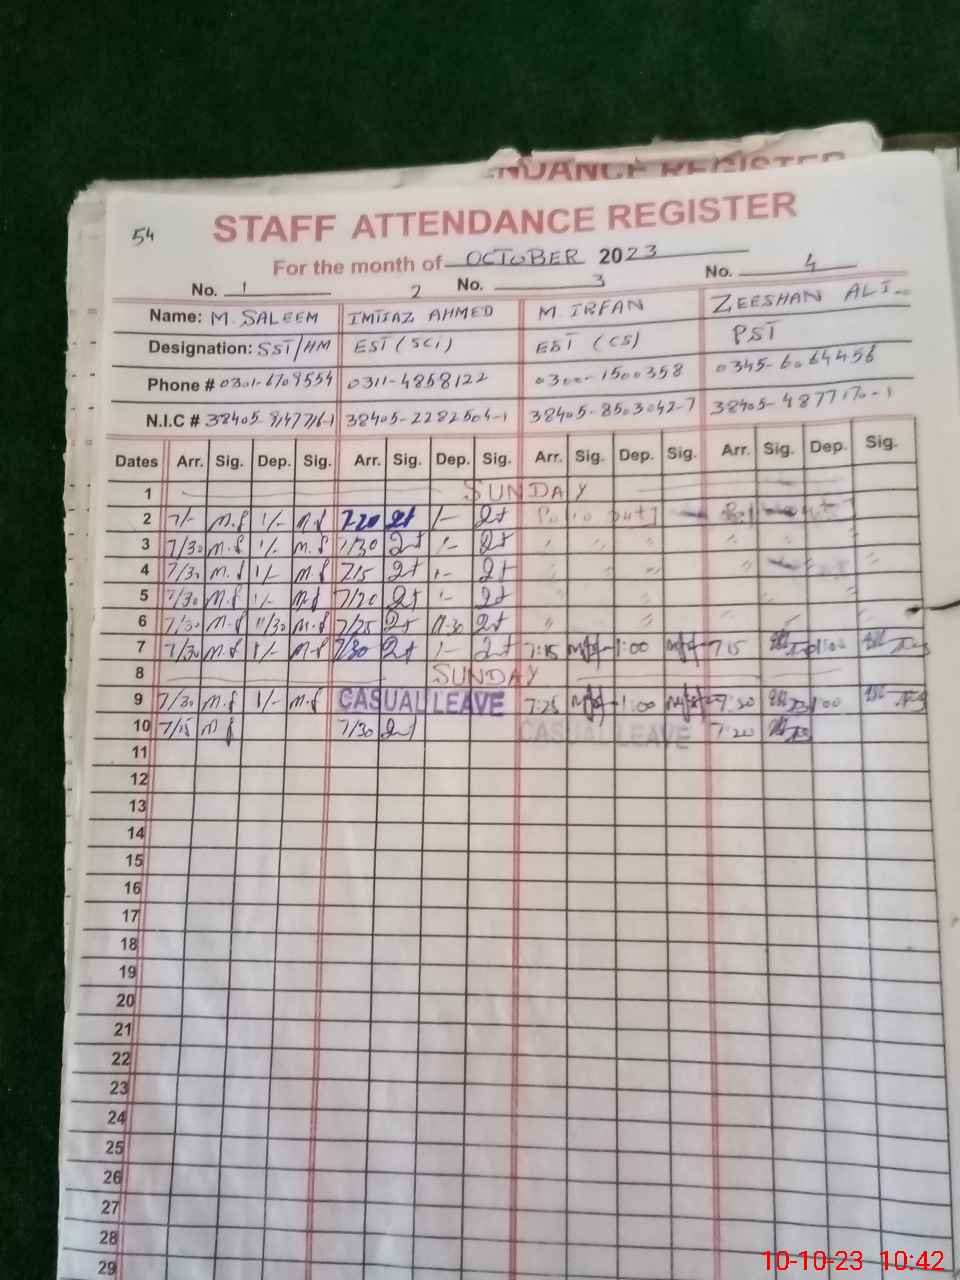 NDANCE REGISTER
54
STAFF ATTENDANCE REGISTER
For the month of OCTOBER 2023
No. 1 2 No. 3 No. 4
Name: M. SALEEM IMTIAZ AHMED M. IRFAN ZEESHAN ALI
Designation: SST/HM EST (SCi) EST (CS) PST
Phone # 0301-6709554 0311-4868122 0300-1500358 0345-6064456
N.I.C # 38405-2282504-1 38405-8503042-7 38405-4877170-1
Dates Arr. Sig. Dep. Sig. Arr. Sig. Dep. Sig. Arr. Sig. Dep. Sig. Arr. Sig. Dep. Sig.
1 SUNDAY
2 7/- 1/- 7-20 1-
3 7/30 1/- 7/30 1- " " " " " " "
4 7/30 1/- 7/15 1- " " " "
5 7/30 1/- 7/20 1-
6 7/30 11/30 7/25 11-30 " " " "
7 7/30 1/- 7/30 1- 7:15 1:00 7:15 1:00
8 SUNDAY
9 7/30 1/- CASUAL LEAVE 7:25 1:00 7:30 1:00
10 7/15 7/30 CASUAL LEAVE 7:20
11
12
13
14
15
16
17
18
19
20
21
22
23
24
25
26
27
28
29
10-10-23 10:42